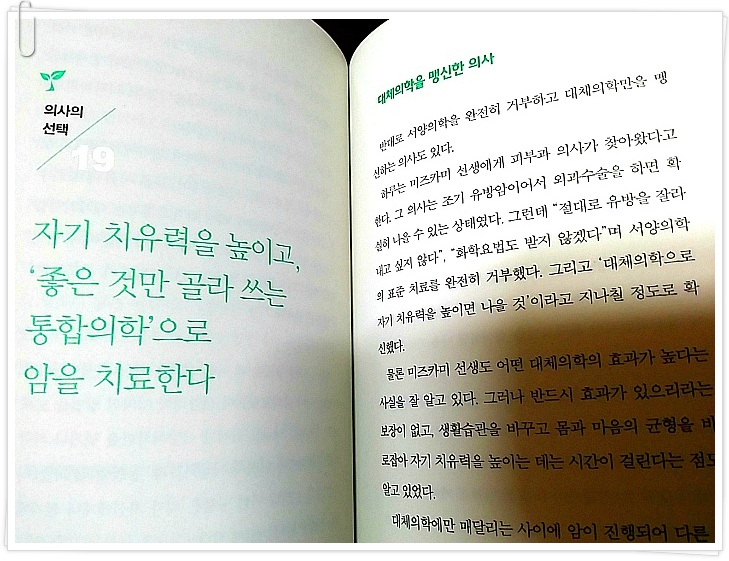 의사의
선택
19
자기 치유력을 높이고,
‘좋은 것만 골라 쓰는
통합의학’으로
암을 치료한다
대체의학을 맹신한 의사
반대로 서양의학을 완전히 거부하고 대체의학만을 맹
신하는 의사도 있다.
하루는 미즈카미 선생에게 피부과 의사가 찾아왔다고
한다. 그 의사는 조기 유방암이어서 외과수술을 하면 확
실히 나을 수 있는 상태였다. 그런데 “절대로 유방을 잘라
내고 싶지 않다”, “화학요법도 받지 않겠다”며 서양의학
의 표준 치료를 완전히 거부했다. 그리고 ‘대체의학으로
자기 치유력을 높이면 나을 것’이라고 지나칠 정도로 확
신했다.
물론 미즈카미 선생도 어떤 대체의학의 효과가 높다는
사실을 잘 알고 있다. 그러나 반드시 효과가 있으리라는
보장이 없고, 생활습관을 바꾸고 몸과 마음의 균형을 바
로잡아 자기 치유력을 높이는 데는 시간이 걸린다는 점도
알고 있었다.
대체의학에만 매달리는 사이에 암이 진행되어 다른